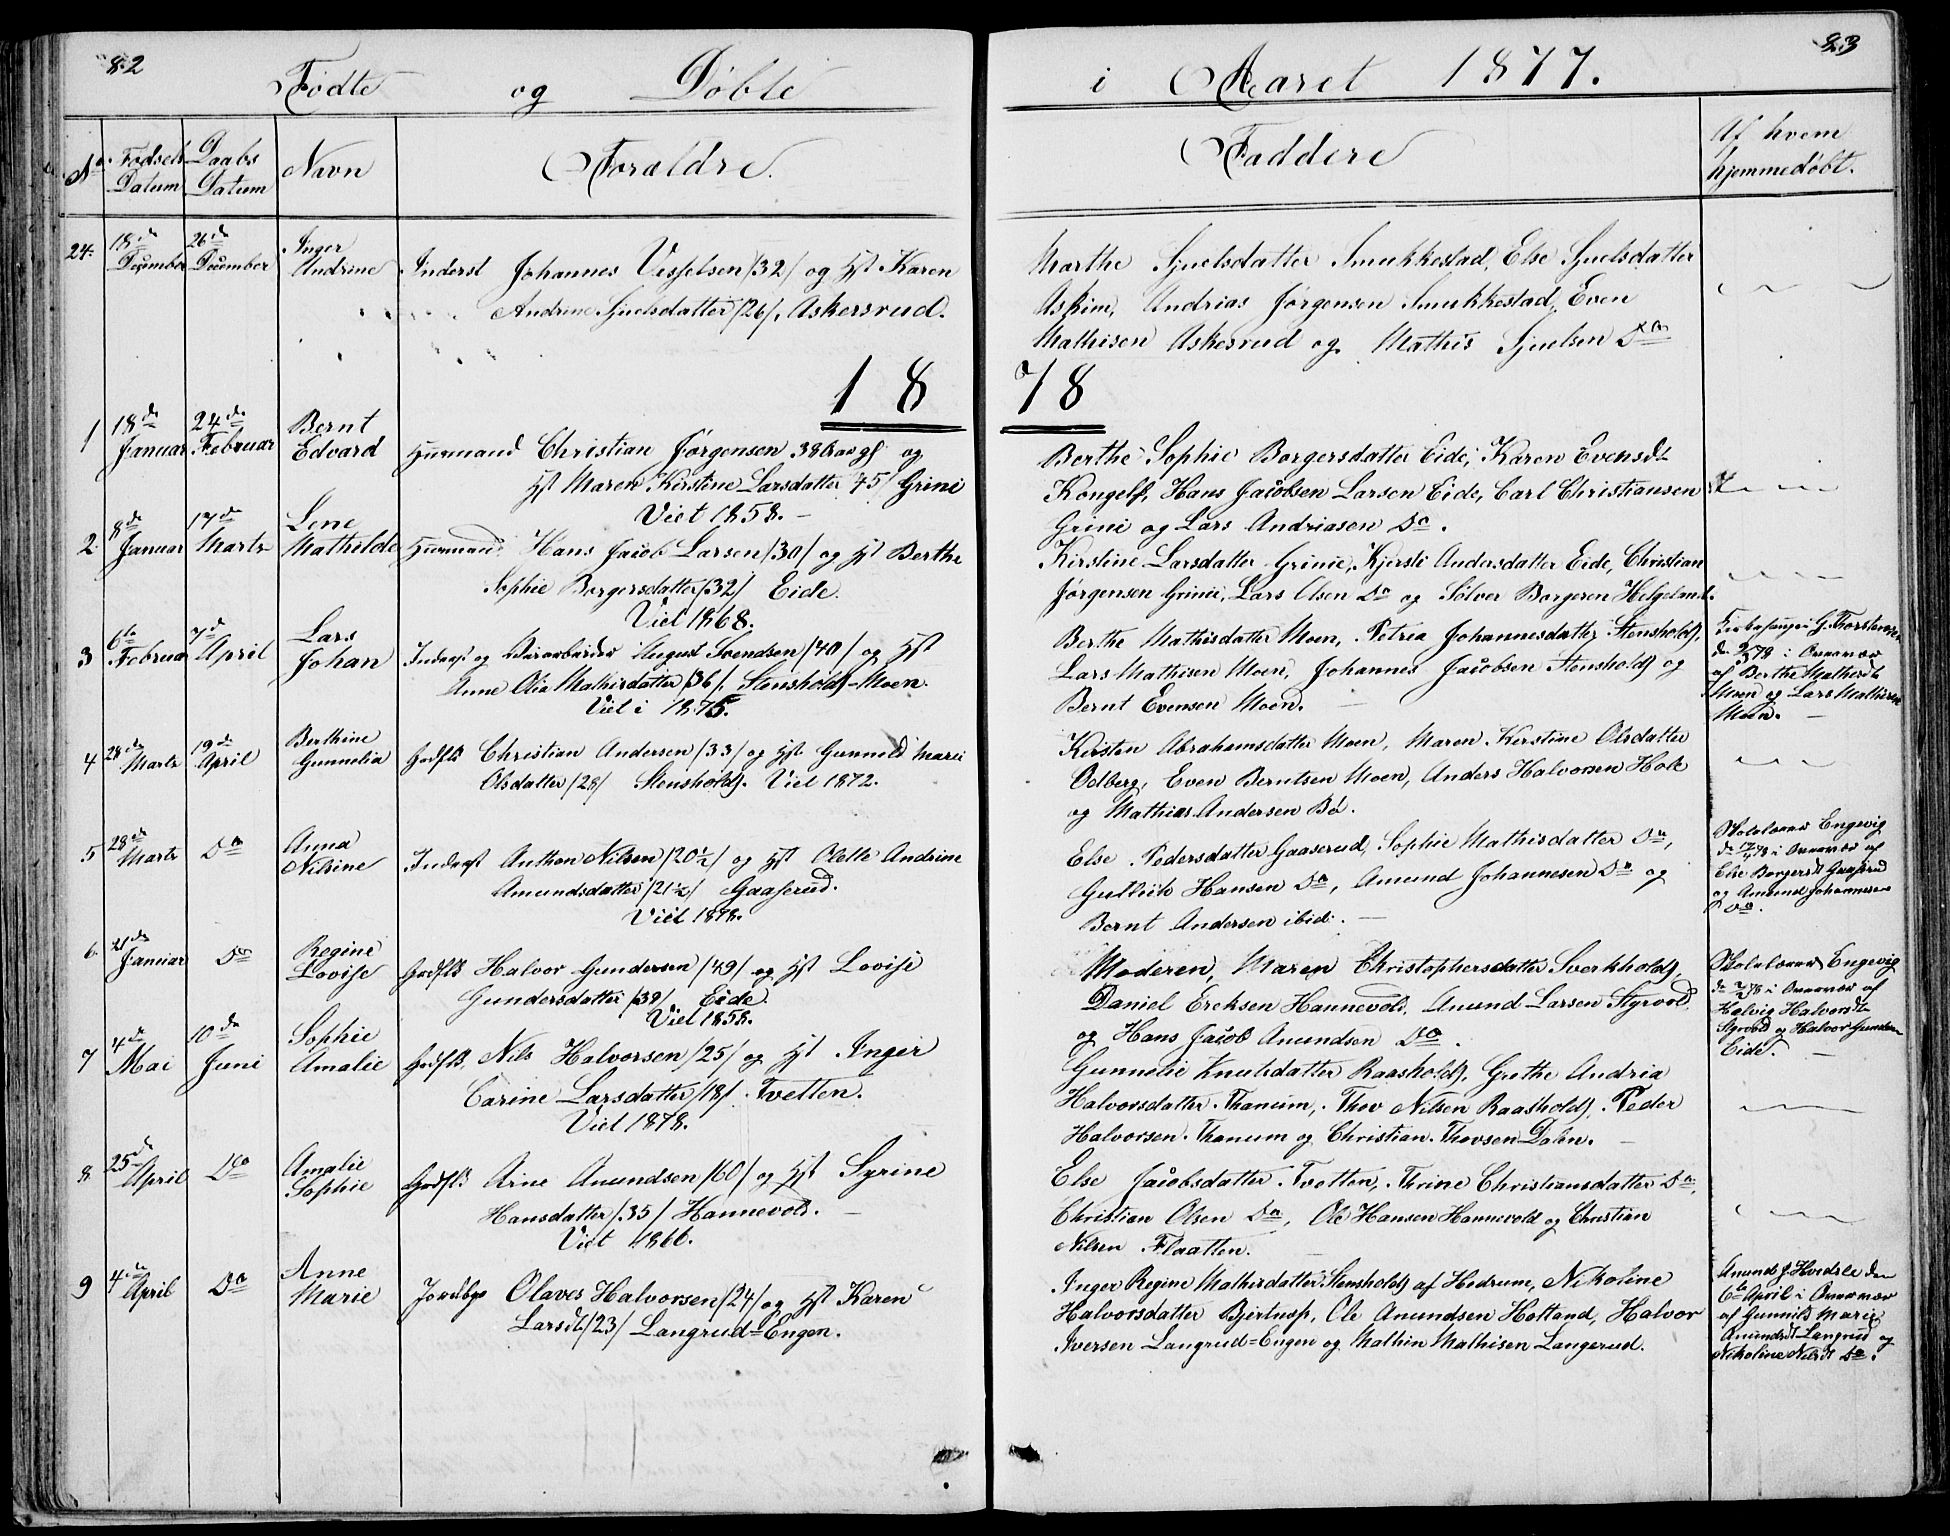 82
Fødte og Døbte
i Aaret 1877.
83
No. Fødsels Datum Daabs Datum Navn Forældre.
Faddere
Af hvem hjemmedøbt.
24. 18de December 26de December Inger Andrine
Inderst Johannes Visselsen /32/ og Hst Karen
Andrine Sjuelsdatter /26/, Askersrud.
Marthe Sjuelsdatter Smukkestad, Else Sjuelsdatter
Askim, Andrias Jørgensen Smukkestad, Even
Mathisen Askesrud og Mathis Sjuelsen Do
1878
1 18de Januar 24de Februar Bernt Edvard
Huusmand Christian Jørgensen 38 og
Hst Maren Kirstine Larsdatter 45/ Grini
Viet 1858. –
Berthe Sophie Borgersdatter Eide, Karen Evensdt
Kongelf, Hans Jacobsen Larsen Eide, Carl Christiansen
Grini og Lars Andriasen Do.
2. 8de Januar 17de Martz Lene Mathilde
Huusmand Hans Jacob Larsen /30/ og Hst Berthe
Sophie Borgersdatter /32/ Eide.
Viet 1868.
Kirstine Larsdatter Grinie, Kjersti Andersdatter Eide, Christian
Jørgensen Grinie, Lars Olsen Do og Sølver Borgeren Helgeland.
3 6te Februar 7de April Lars Johan
Inderst og August Svendsen /40/ og Hst
Anne Olia Mathisdatter /36/, Stensholdt-Moen.
Viet i 1875.
Berthe Mathisdatter Moen, Petrea Johannesdatter Stensholdt,
Lars Mathisen Moen, Johannes Jacobsen Stensholdt og
Bernt Evensen Moen. –
Kirkesanger G. Torstensen
d. 9/2 78 i Overvær
af Berthe Mathisdt
Moen og Lars Mathisen
Moen. –
4 28de Martz 19de April Berthine Gunnelia
Gaardb Christian Andersen /33/ og Hst Gunnild Marie
Olsdatter /28/ Stensholdt. Viet 1872.
Kirsten Abrahamsdatter Moen, Maren Kirstine Olsdatter
Odberg, Even Berntsen Moen, Anders Halvorsen Holt
og Mathias Andersen Bø.
5 28de Martz Do Anna Nilsine
Inderst Anthon Nilsen /20½/ og Hst Olette Andrine
Amundsdatter /21½/ Gaaserud.
Viet 1878.
Else Pedersdatter Gaaserud, Sophie Mathisdatter Do,
Gullich Hansen Do, Amund Johannesen Do og
Bernt Andersen ibid. –
Skolelærer Engevig
d. 17/4 78 i Overvær af
Else Borgersdt Gaaserud
og Amund Johannesen
Do.
6. 21de Januar Do Regine Lovise
Gaardb Halvor Gundersen /49/ og Hst Lovise
Gundersdatter /38/ Eide.
Viet 1858.
Moderen, Maren Christophersdatter Sverkholdt,
Daniel Ereksen Hannevold, Anund Larsen Styrvold
og Hans Jacob Anundsen Do.
Skolelærer Engevig
d. 78 i Overvær af
Helvig Halvorsdt
Styrvold og Halvor Gundersen
Eide. –
7 4de Mai 10de Juni Sophie Amalie
Gaardb Nils Halvorsen /25/ og Hst Inger
Carine Larsdatter /18/ Tvetten.
Viet 1878.
Gunnelie Knutsdatter Raasholdt, Grethe Andria
Halvorsdatter Thanum, Thor Nilsen Raasholdt, Peder
Halvorsen Thanum og Christian Thorsen Dalen. –
8 25de April Do Amalie Sophie
Gaardb Arne Anundsen /60/ og Hst Syrine
Hansdatter /35/ Hannevold. –
Viet 1866.
Else Jacobsdatter Tvetten, Thrine Christiansdatter Do,
Christian Olsen Do, Ole Hansen Hannevold og Christian
Nilsen Flaatten.
9 4de April Do Anne Marie
Jordbgr Olaves Halvorsen /24/ og Hst Karen
Larsdt /23/ Langrud=Engen.
Inger Regine Mathisdatter Stensholdt af Hedrum, Nikoline
Halvorsdatter Bjertnes, Ole Anundsen Holtand, Halvor
Iversen Langrud=Engen og Mathis Mathisen Langerud.
Anund J. Hvidsle den
6te April i Overvær
af Gunnild Marie
Anundsdt Langrud og
Nikoline Nilsdt Do.